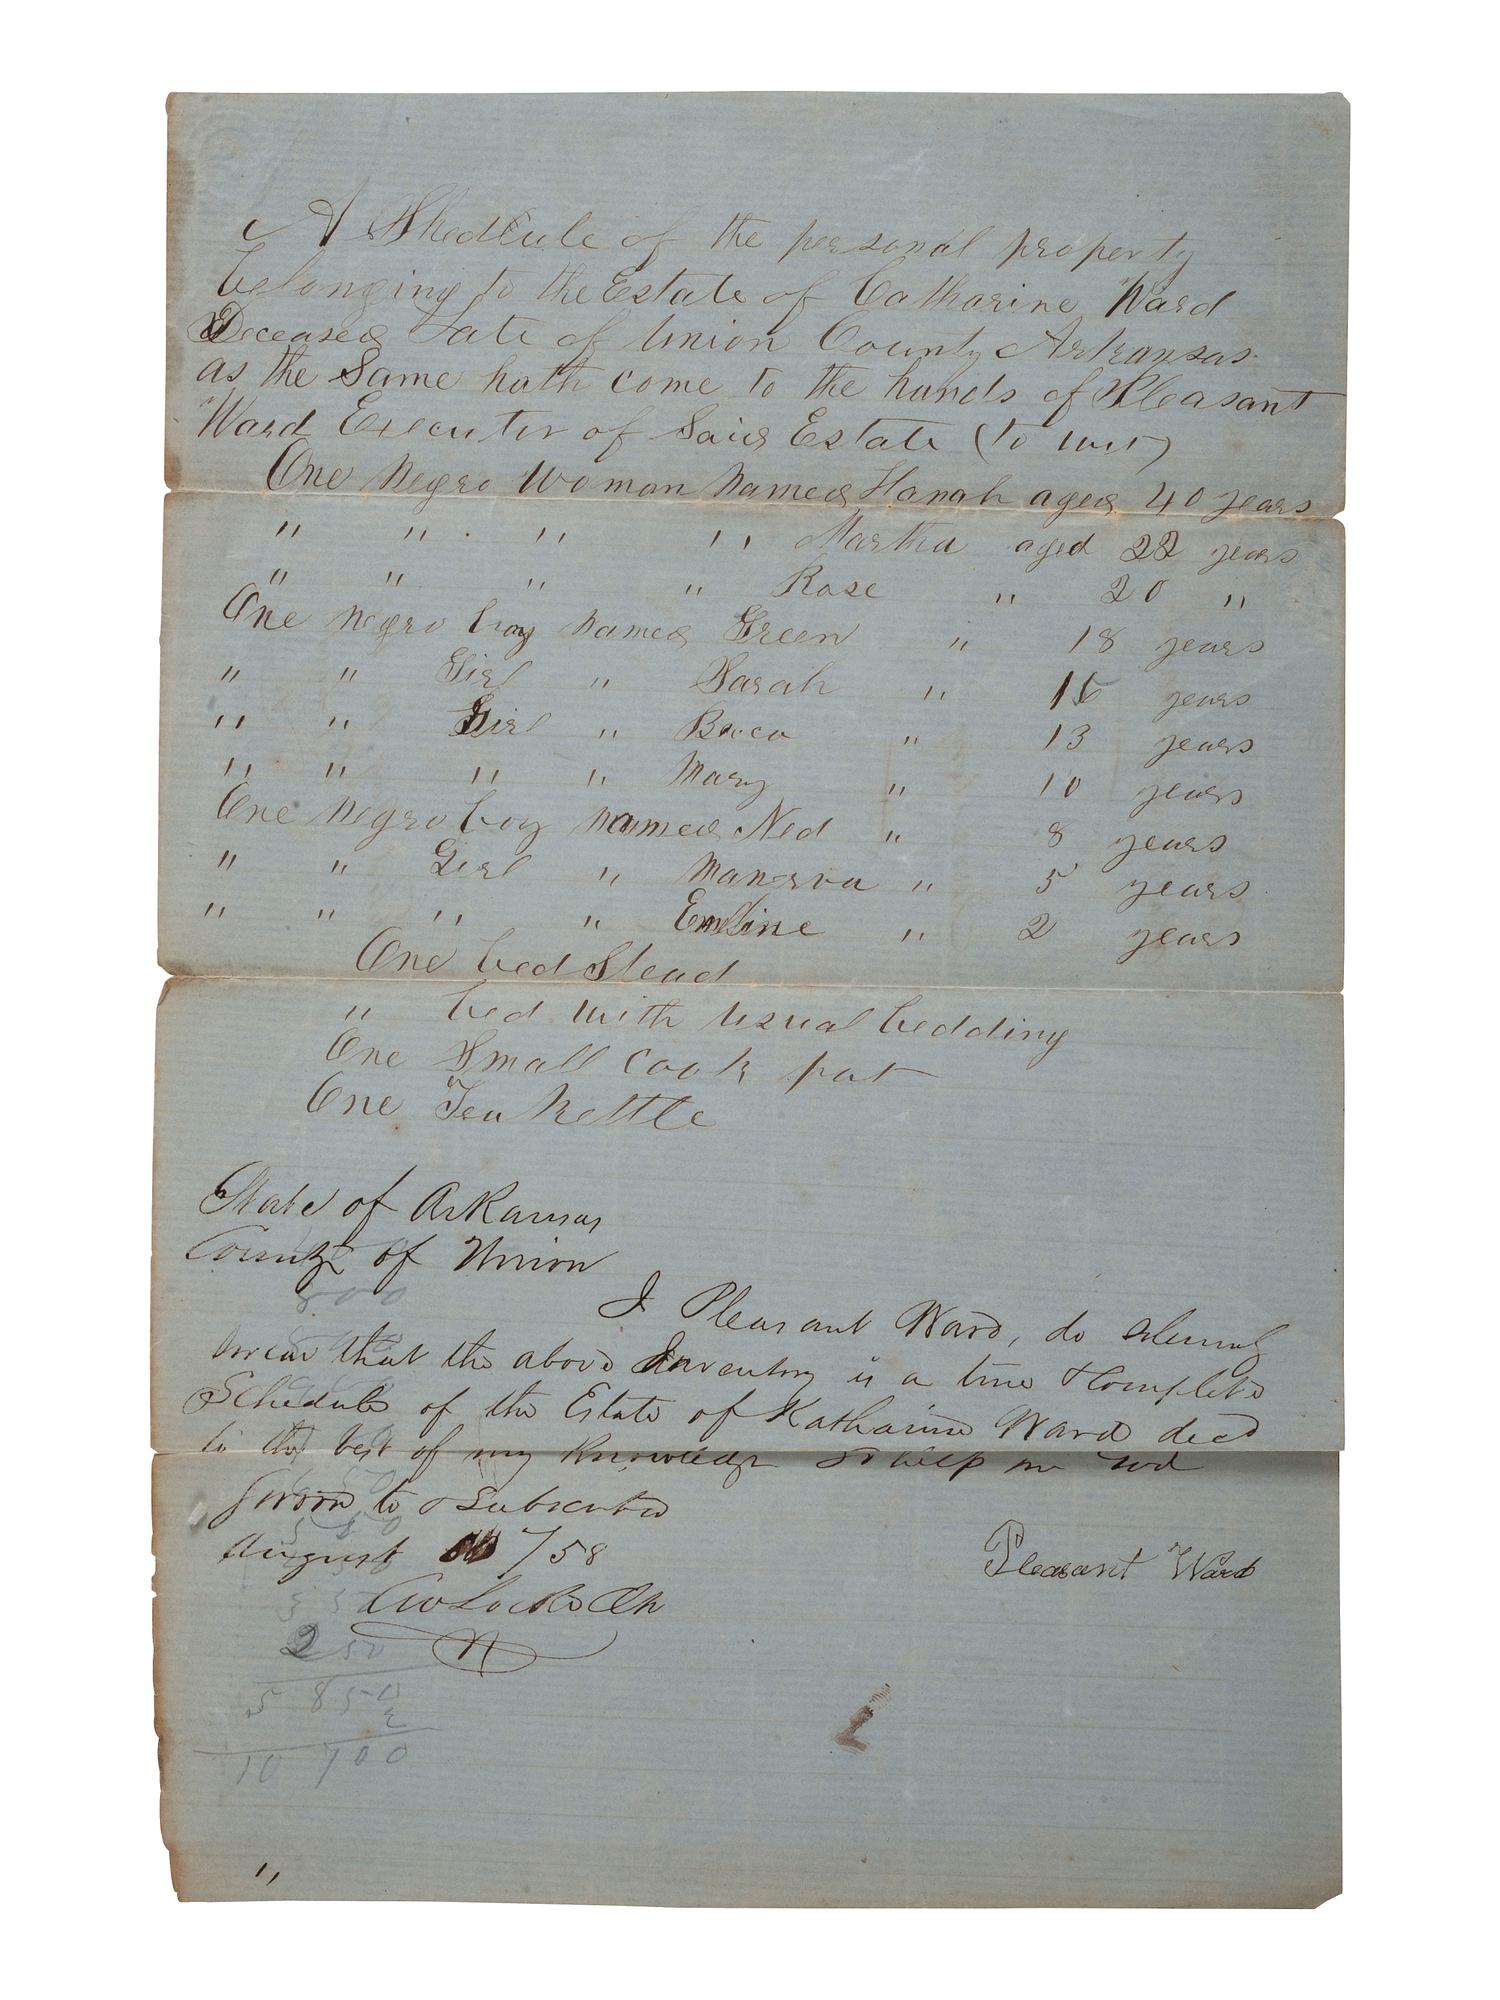 A Shedule of the personal property
belonging to the Estate of Catharine Ward
Deceased Late of Union County Arkansas
as the Same hath come to the hands of Pleasant
Ward Executor of Said Estate (to wit)
One Negro Woman Named Hanah aged 40 years
" " " " Martha aged 22 years
" " " " Rose " 20 "
One negro boy named Green " 18 years
" " Girl " Sarah " 15 years
" " Girl " Becca " 13 years
" " " " Mary " 10 years
One Negro boy named Ned " 8 years
" " Girl " Manerva " 5 years
" " " " Emline " 2 years
One bed Stead
" bed with usual bedding
One Small cook pot
One Tea Kettle
State of Arkansas
County of Union
I Pleasant Ward, do solemnly
swear that the above Inventory is a true & complete
Schedule of the Estate of Katharine Ward decd
to the best of my Knowledge So help me God
Sworn to & Subscribed
August /58
Pleasant Ward
250
5850
2
10 700
"